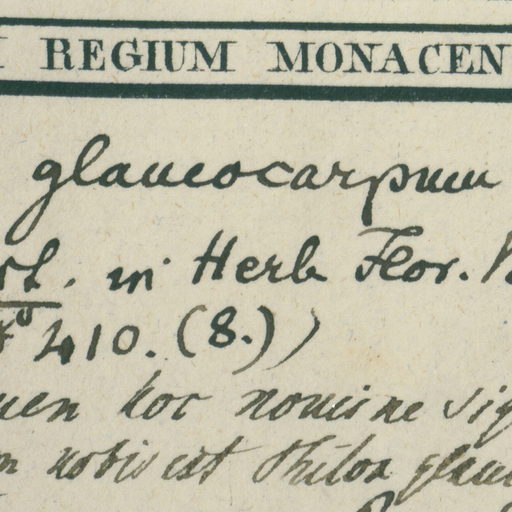 REGIUM MONACEN
glaucocarpum
in Herb Flor.
410. (8.))
hoc nomine sig
nobis est Phlox glauc